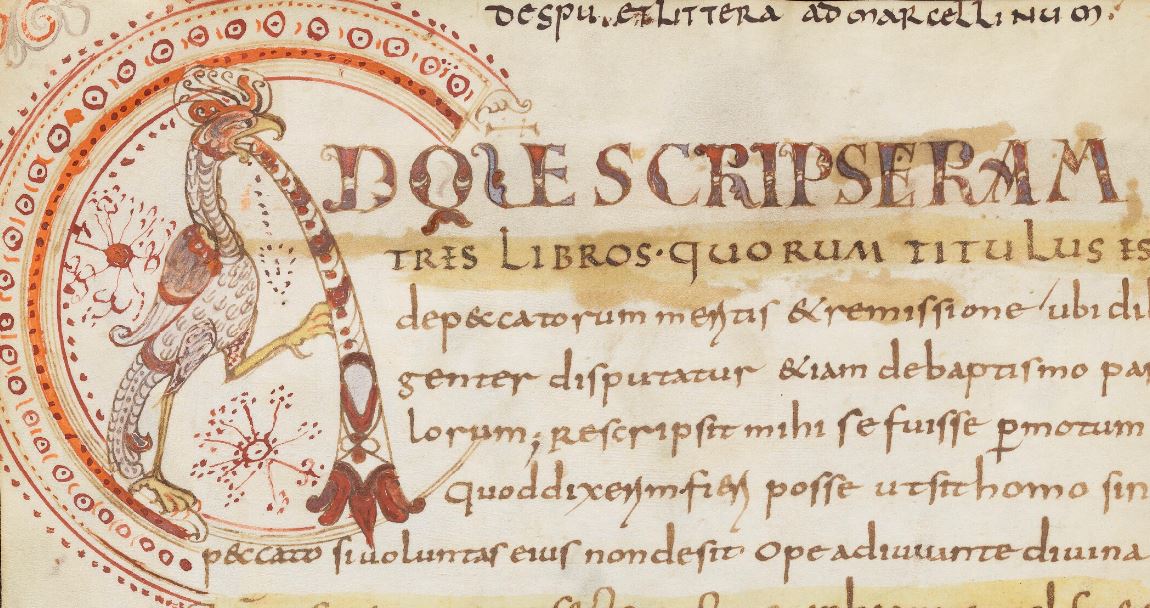 DESPU. ET LITTERA AD MARCELLINUM.
AD QUE SCRIPSERAM
TRES LIBROS· QUORUM TITULUS ES
depeccatorum meritis &remissione ubi dil
genter disputatur &iam debaptismo par
lorum; Rescripsit mihi se fuisse pmotum
quod dixerim fieri posse utsit homo sin
peccato si uoluntas eius non desit Ope adiuuante diuina